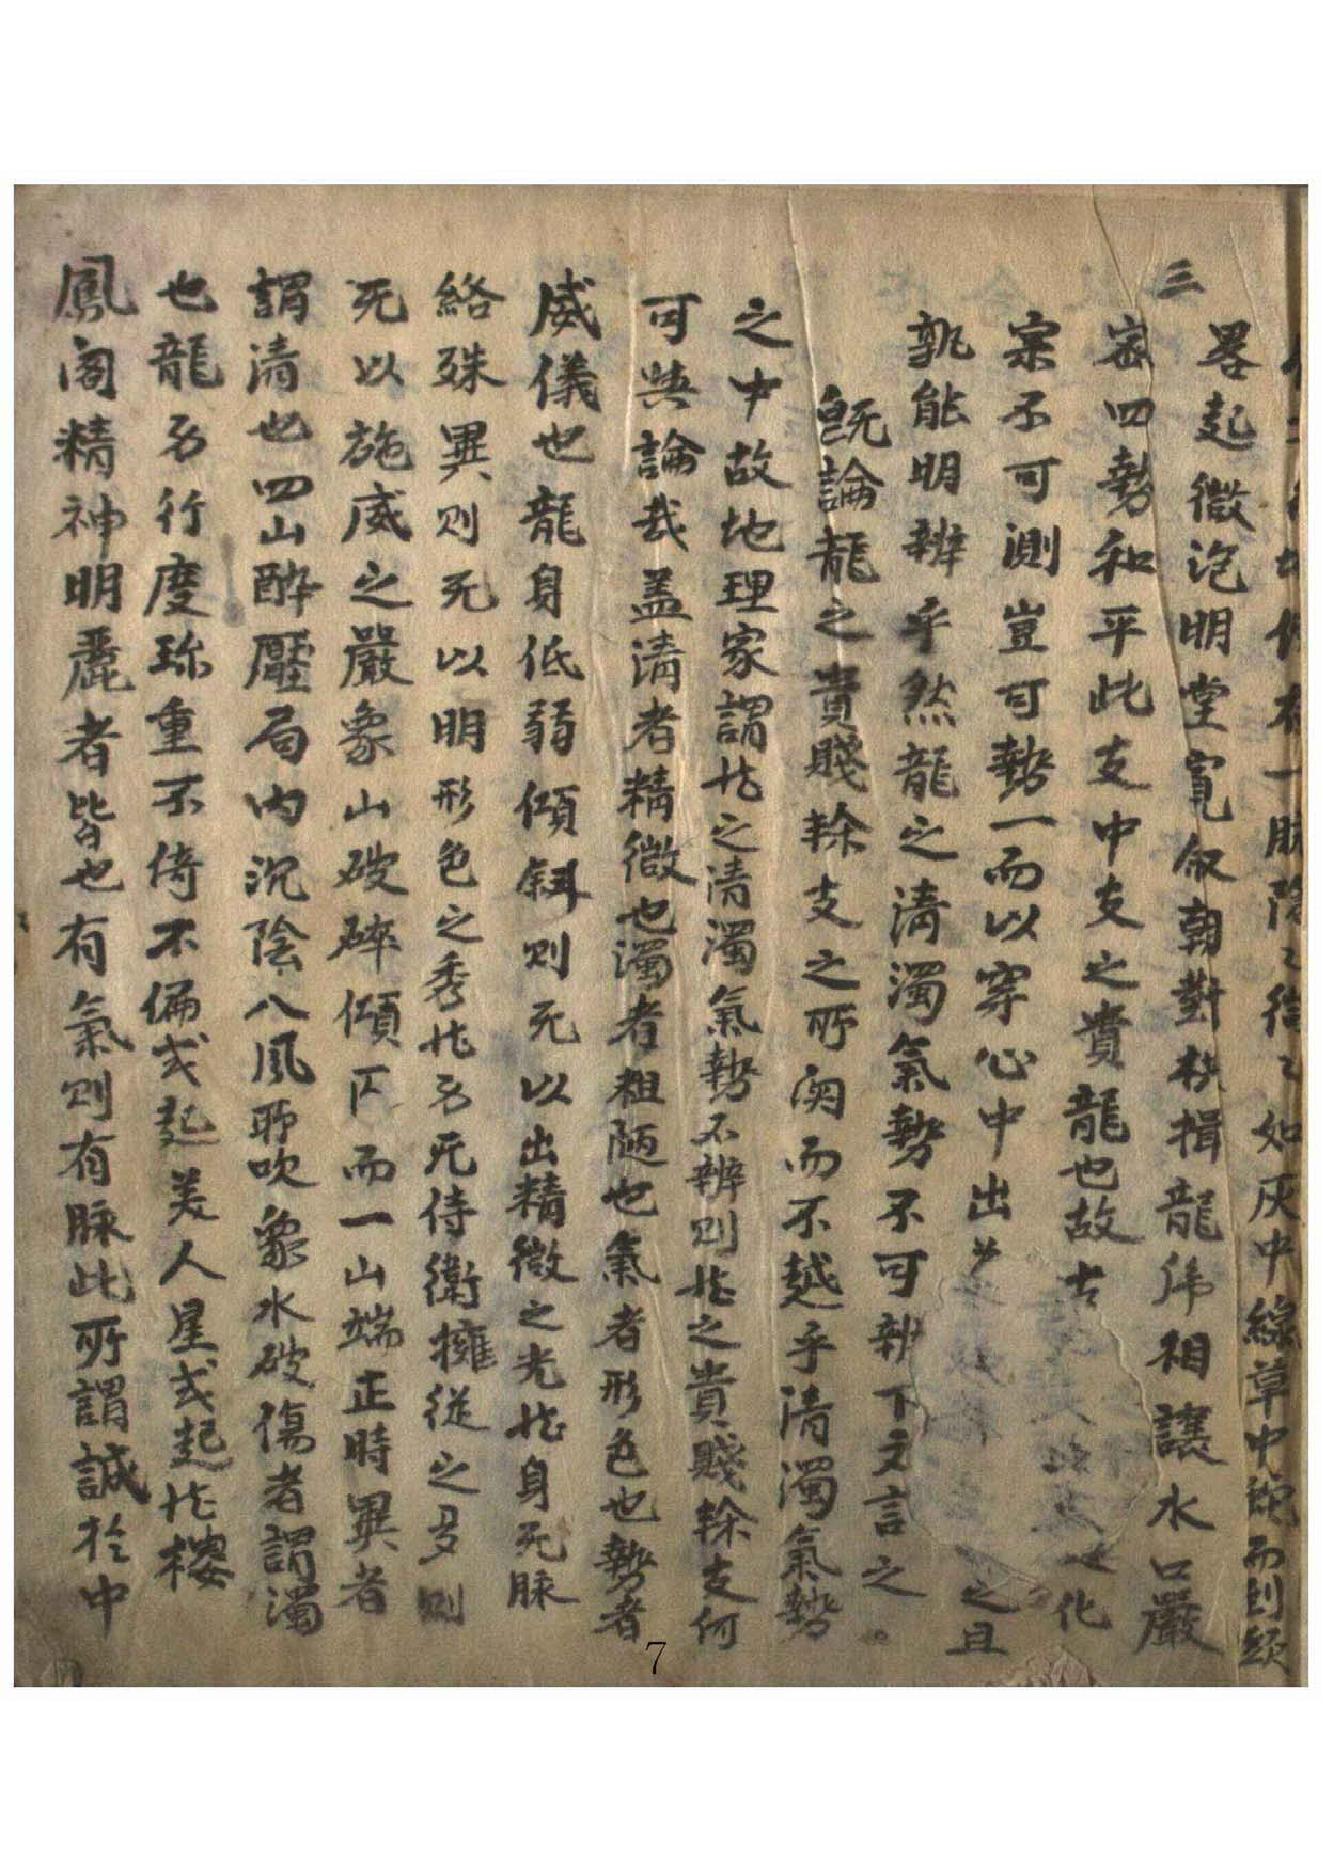 一脉隱〻後〻如灰中線草中蛇而到頭
三
畧起微泡明堂寬敘朝對拱揖龍虎相讓水口嚴
密四勢和平此支中支之貴龍也故古化
宗不可測豈可勢一而以穿心中出之且
孰能明辨乎然龍之清濁氣勢不可辨下文言之。
旣論龍之貴賤幹支之所関而不越乎清濁氣勢
之中故地理家謂龙之清濁氣勢不辨則龙之貴賤幹支何
可與論哉盖清者精微也濁者粗陋也氣者形色也勢者
威儀也龍身低弱傾斜則无以出精微之光龙身无脉
絡殊異則无以明形色之秀龙另无侍衛擁從之多則
无以施威之嚴象山破碎傾仄而一山端正時異者
謂清也四山酔壓局內沉陰八風聊吹象水破傷者謂濁
也龍另行度珎重不倚不偏或起美人星或起龙樓
鳳阁精神明麗者皆也有氣則有脉此所謂誠於中
7